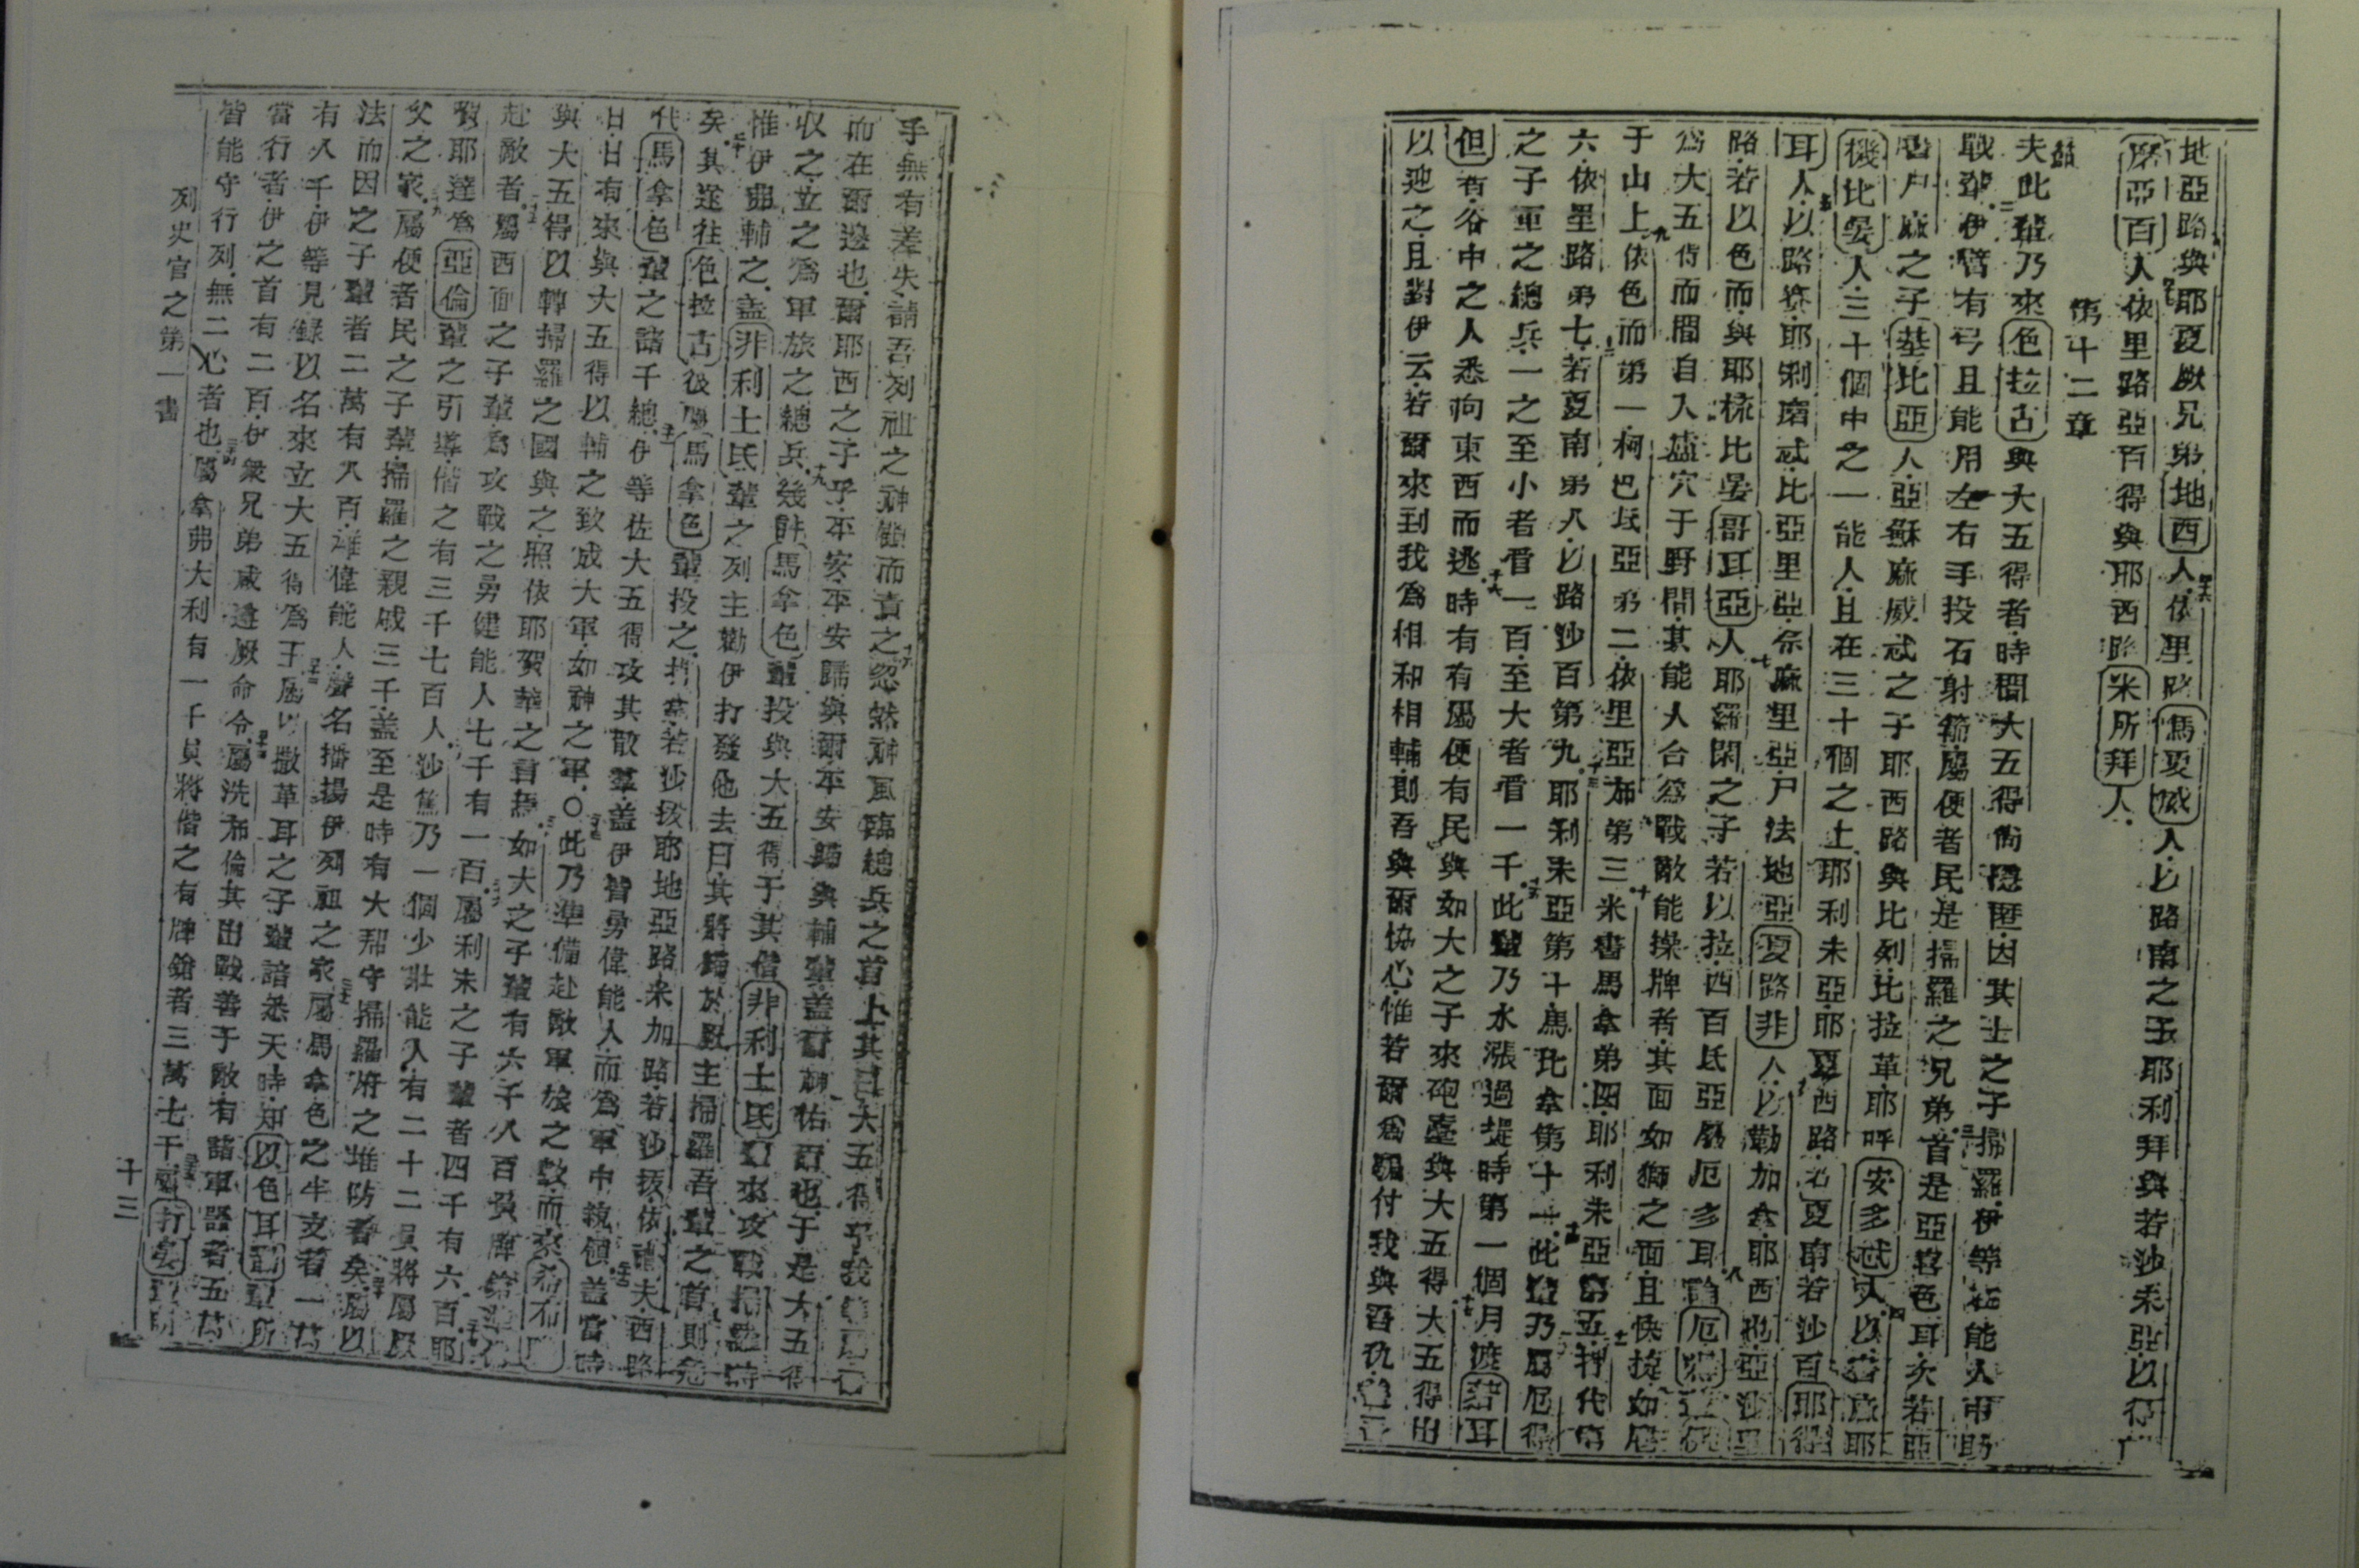 地亞路與耶夏厥兄弟地西人依里路馬夏威人以路南之玉耶利拜與若沙未亞以得
摩亞百人依里路亞百得與耶西路米所拜人
第十二章
夫此輩乃來色拉古與大五得者時間大五得尚隱匿因其士之子掃羅伊等在能人中助
戰輩伊俻有弓且能用左右手投石射箭屬便者民是掃羅之兄弟首是亞希色耳次若亞
沙是麻之子基比亞人亞穌麻威忒之子耶西路與比列比拉革耶呼安多忒人以若麻耶
機比晏人三十個中之一能人且在三十個之上耶利未亞耶夏西路若夏南若沙百耶得
耳人以路賽耶利磨忒比亞里亞示麻里亞尸法地亞夏路非人以勒加拿耶西也亞沙里
路若以色而與耶梳比晏哥耳亞人耶羅閑之子若以拉西百氐亞屬厄多耳
爲大五得而間自入墟穴于野間其能人台爲戰敵能操牌者其面如獅之面且快捷如鹿
于山上依色而第一柯巴氐亞弟二依里亞布第三米書馬拿弟四耶利未亞第五押代第
六依里路弟七若夏南弟八以路沙百第九耶利未亞第十馬比拿第十一此輩乃屬厄得
之子軍之總兵一之至小者看一百至大者看一千此輩乃水漲過堤時第一個月渡若耳
但有谷中之人悉向東西而逃時有有屬便有民與如大之子來砲臺與大五得大五得出
以迎之且對伊云若爾來到我爲相和相輔則吾與爾恊心惟若爾爲騙付我與吾仇
乎無有差失請吾列祖之神鑒而責之忽然神風臨總兵之首上其曰大五得乎我
而在爾邊也爾耶西之子乎平安平安歸與爾平安歸與輔輩蓋爾神佑爾也于是大五得
收之立之爲軍旅之總兵幾許馬拿色輩投與大五得于其偕非利士氐輩來攻戰掃羅時
惟伊弗輔之蓋非利士氐輩之列主勸伊打發他去曰其將歸於厥主掃羅吾輩之首則危
矣其遂往色拉古彼屬馬拿色輩投之押拿若沙拔耶地亞路米加路若沙拔依利夫西路
代馬拿色輩之諸千總伊等佐大五得攻其散羣蓋伊皆勇偉能人而爲軍中統領蓋當時
日日有來與大五得以輔之致成大軍如神之軍〇此乃準備赴敵軍旅之數而來希布崙
與大五得以轉掃羅之國與之照依耶賀華之言焉如大之子輩有六千八百負牌鎗準備
赴敵者屬西面之子輩爲攻戰之勇健能人七千有一百屬利未之子輩者四千有六百耶
賀耶達爲亞倫輩之引導偕之有三千七百人沙篤乃一個少壯能人有二十二員將屬厥
父之家屬便者民之子輩掃羅之親戚三千蓋至是時有大那守掃羅府之堆防者矣屬以
法而因之子輩者二萬有八百雄偉能人聲名播揚伊列祖之家屬馬拿色之半支者一萬
有八千伊等見錄以名來立大五得爲王屬以撒革耳之子輩諳悉天時知以色耳輩所
當行者伊之首有二百伊衆兄弟咸遵厥命令屬洗布倫其出戰善于敵有諸軍器者五萬
皆能守行列無二心者也屬拿弗大利有一千員將偕之有牌鎗者三萬七千屬打晏
列史官之第一書
十三